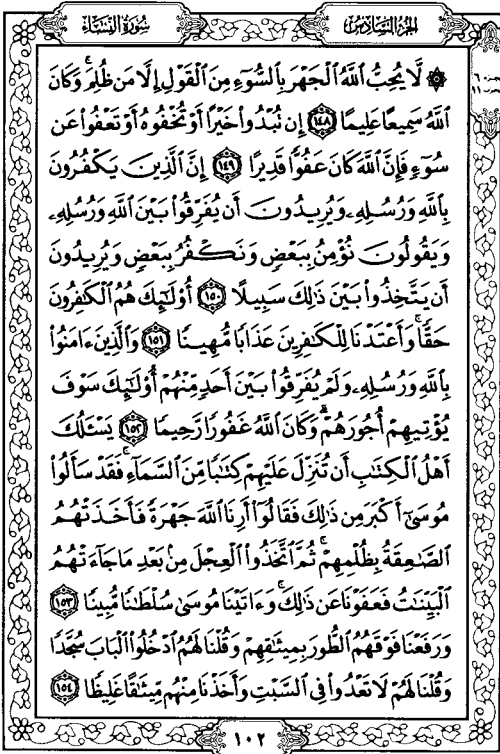 الجزء السادس
سورة النساء
۞ لَّا يُحِبُّ ٱللَّهُ ٱلْجَهْرَ بِٱلسُّوٓءِ مِنَ ٱلْقَوْلِ إِلَّا مَن ظُلِمَ ۚ وَكَانَ
ٱللَّهُ سَمِيعًا عَلِيمًا ١٤٨ إِن تُبْدُوا۟ خَيْرًا أَوْ تُخْفُوهُ أَوْ تَعْفُوا۟ عَن
سُوٓءٍ فَإِنَّ ٱللَّهَ كَانَ عَفُوًّا قَدِيرًا ١٤٩ إِنَّ ٱلَّذِينَ يَكْفُرُونَ
بِٱللَّهِ وَرُسُلِهِۦ وَيُرِيدُونَ أَن يُفَرِّقُوا۟ بَيْنَ ٱللَّهِ وَرُسُلِهِۦ
وَيَقُولُونَ نُؤْمِنُ بِبَعْضٍ وَنَكْفُرُ بِبَعْضٍ وَيُرِيدُونَ
أَن يَتَّخِذُوا۟ بَيْنَ ذَٰلِكَ سَبِيلًا ١٥٠ أُو۟لَٰٓئِكَ هُمُ ٱلْكَٰفِرُونَ
حَقًّا ۚ وَأَعْتَدْنَا لِلْكَٰفِرِينَ عَذَابًا مُّهِينًا ١٥١ وَٱلَّذِينَ ءَامَنُوا۟
بِٱللَّهِ وَرُسُلِهِۦ وَلَمْ يُفَرِّقُوا۟ بَيْنَ أَحَدٍ مِّنْهُمْ أُو۟لَٰٓئِكَ سَوْفَ
يُؤْتِيهِمْ أُجُورَهُمْ ۗ وَكَانَ ٱللَّهُ غَفُورًا رَّحِيمًا ١٥٢ يَسْـَٔلُكَ
أَهْلُ ٱلْكِتَٰبِ أَن تُنَزِّلَ عَلَيْهِمْ كِتَٰبًا مِّنَ ٱلسَّمَآءِ ۚ فَقَدْ سَأَلُوا۟
مُوسَىٰٓ أَكْبَرَ مِن ذَٰلِكَ فَقَالُوٓا۟ أَرِنَا ٱللَّهَ جَهْرَةً فَأَخَذَتْهُمُ
ٱلصَّٰعِقَةُ بِظُلْمِهِمْ ۚ ثُمَّ ٱتَّخَذُوا۟ ٱلْعِجْلَ مِنۢ بَعْدِ مَا جَآءَتْهُمُ
ٱلْبَيِّنَٰتُ فَعَفَوْنَا عَن ذَٰلِكَ ۚ وَءَاتَيْنَا مُوسَىٰ سُلْطَٰنًا مُّبِينًا ١٥٣
وَرَفَعْنَا فَوْقَهُمُ ٱلطُّورَ بِمِيثَٰقِهِمْ وَقُلْنَا لَهُمُ ٱدْخُلُوا۟ ٱلْبَابَ سُجَّدًا
وَقُلْنَا لَهُمْ لَا تَعْدُوا۟ فِى ٱلسَّبْتِ وَأَخَذْنَا مِنْهُم مِّيثَٰقًا غَلِيظًا ١٥٤
١٠٢